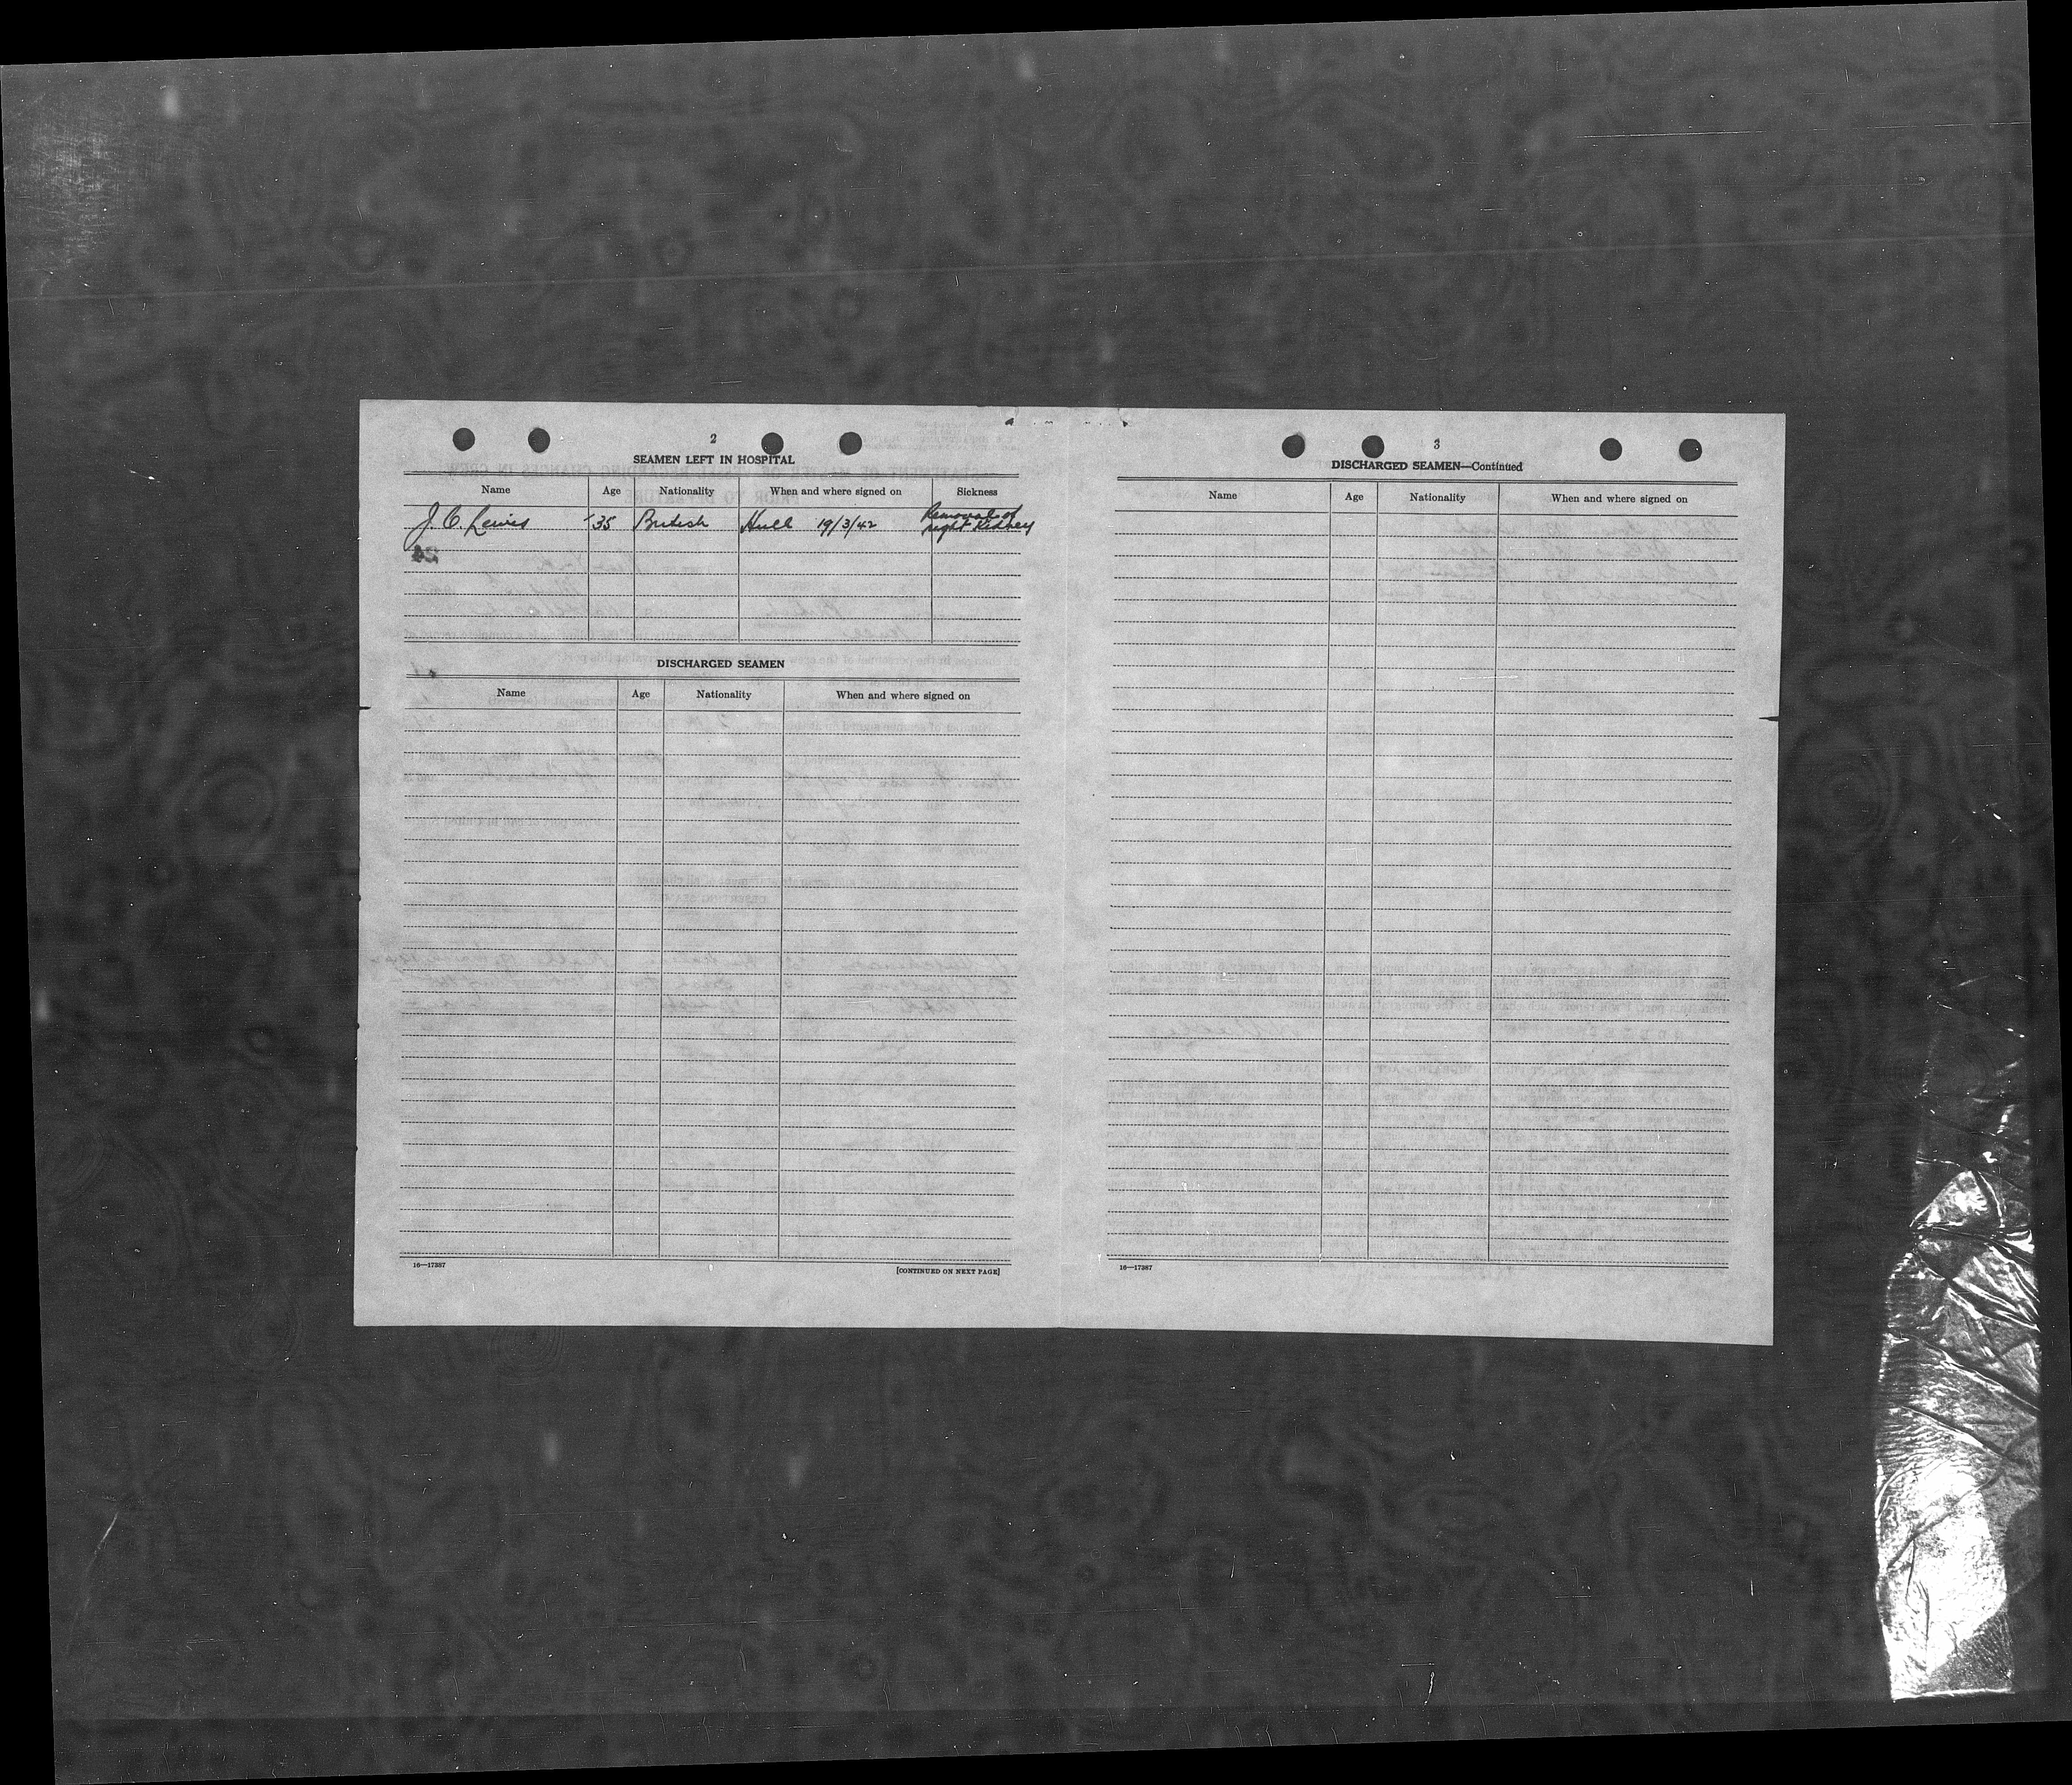 2
SEAMEN LEFT IN HOSPITAL
Name Age Nationality When and where signed on Sickness
J. C. Lewis 35 British Hull 19/3/42 Removal of
right Kidney
DISCHARGED SEAMEN
Name Age Nationality When and where signed on
16—17387
[CONTINUED ON NEXT PAGE]
3
DISCHARGED SEAMEN—Continued
Name Age Nationality When and where signed on
16—17387